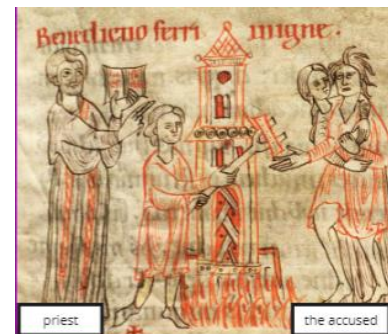 Benedictio ferri in igne.
priest
the accused